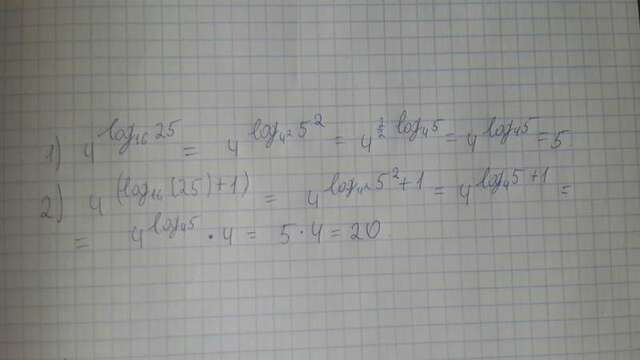 1) 4^(log₁₆25) = 4^(log_(4²)5²) = 4^((2/2)log₄5) = 4^(log₄5) = 5
2) 4^((log₁₆(25)+1)) = 4^(log_(4²)5²+1) = 4^(log₄5+1) =
= 4^(log₄5) · 4 = 5 · 4 = 20